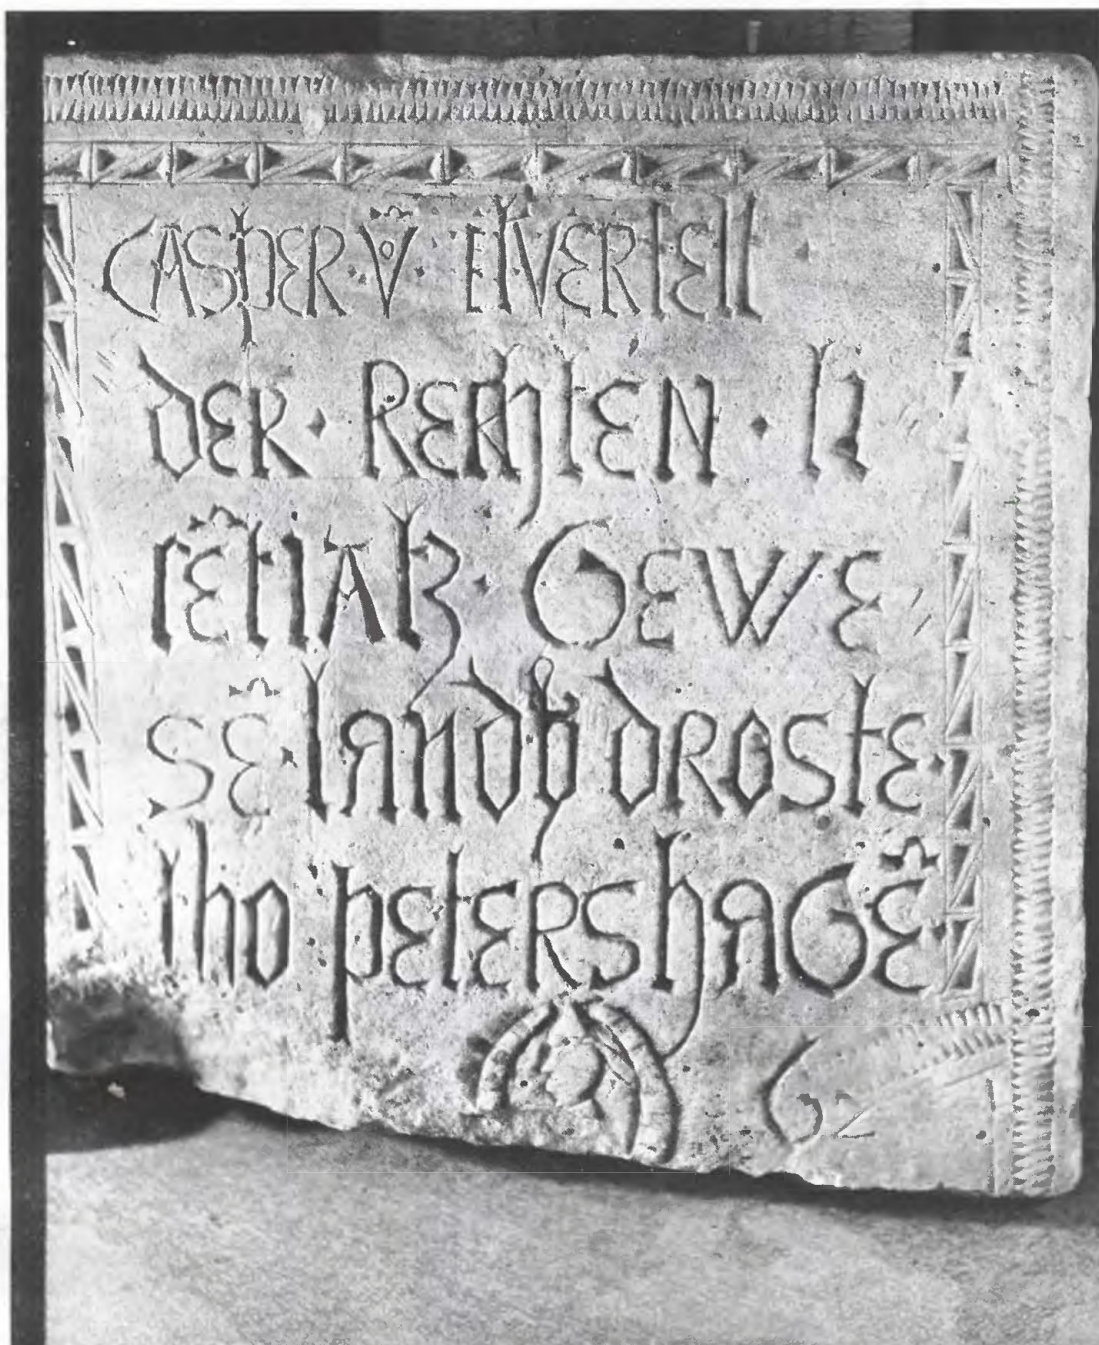 CASPER · VŌ · ELVERFELT ·
DER · RECHTEN · LI
CĒTIATZ · GEWE
SĒ · LAND DROSTE ·
THO PETERSHAGĒ ·
62